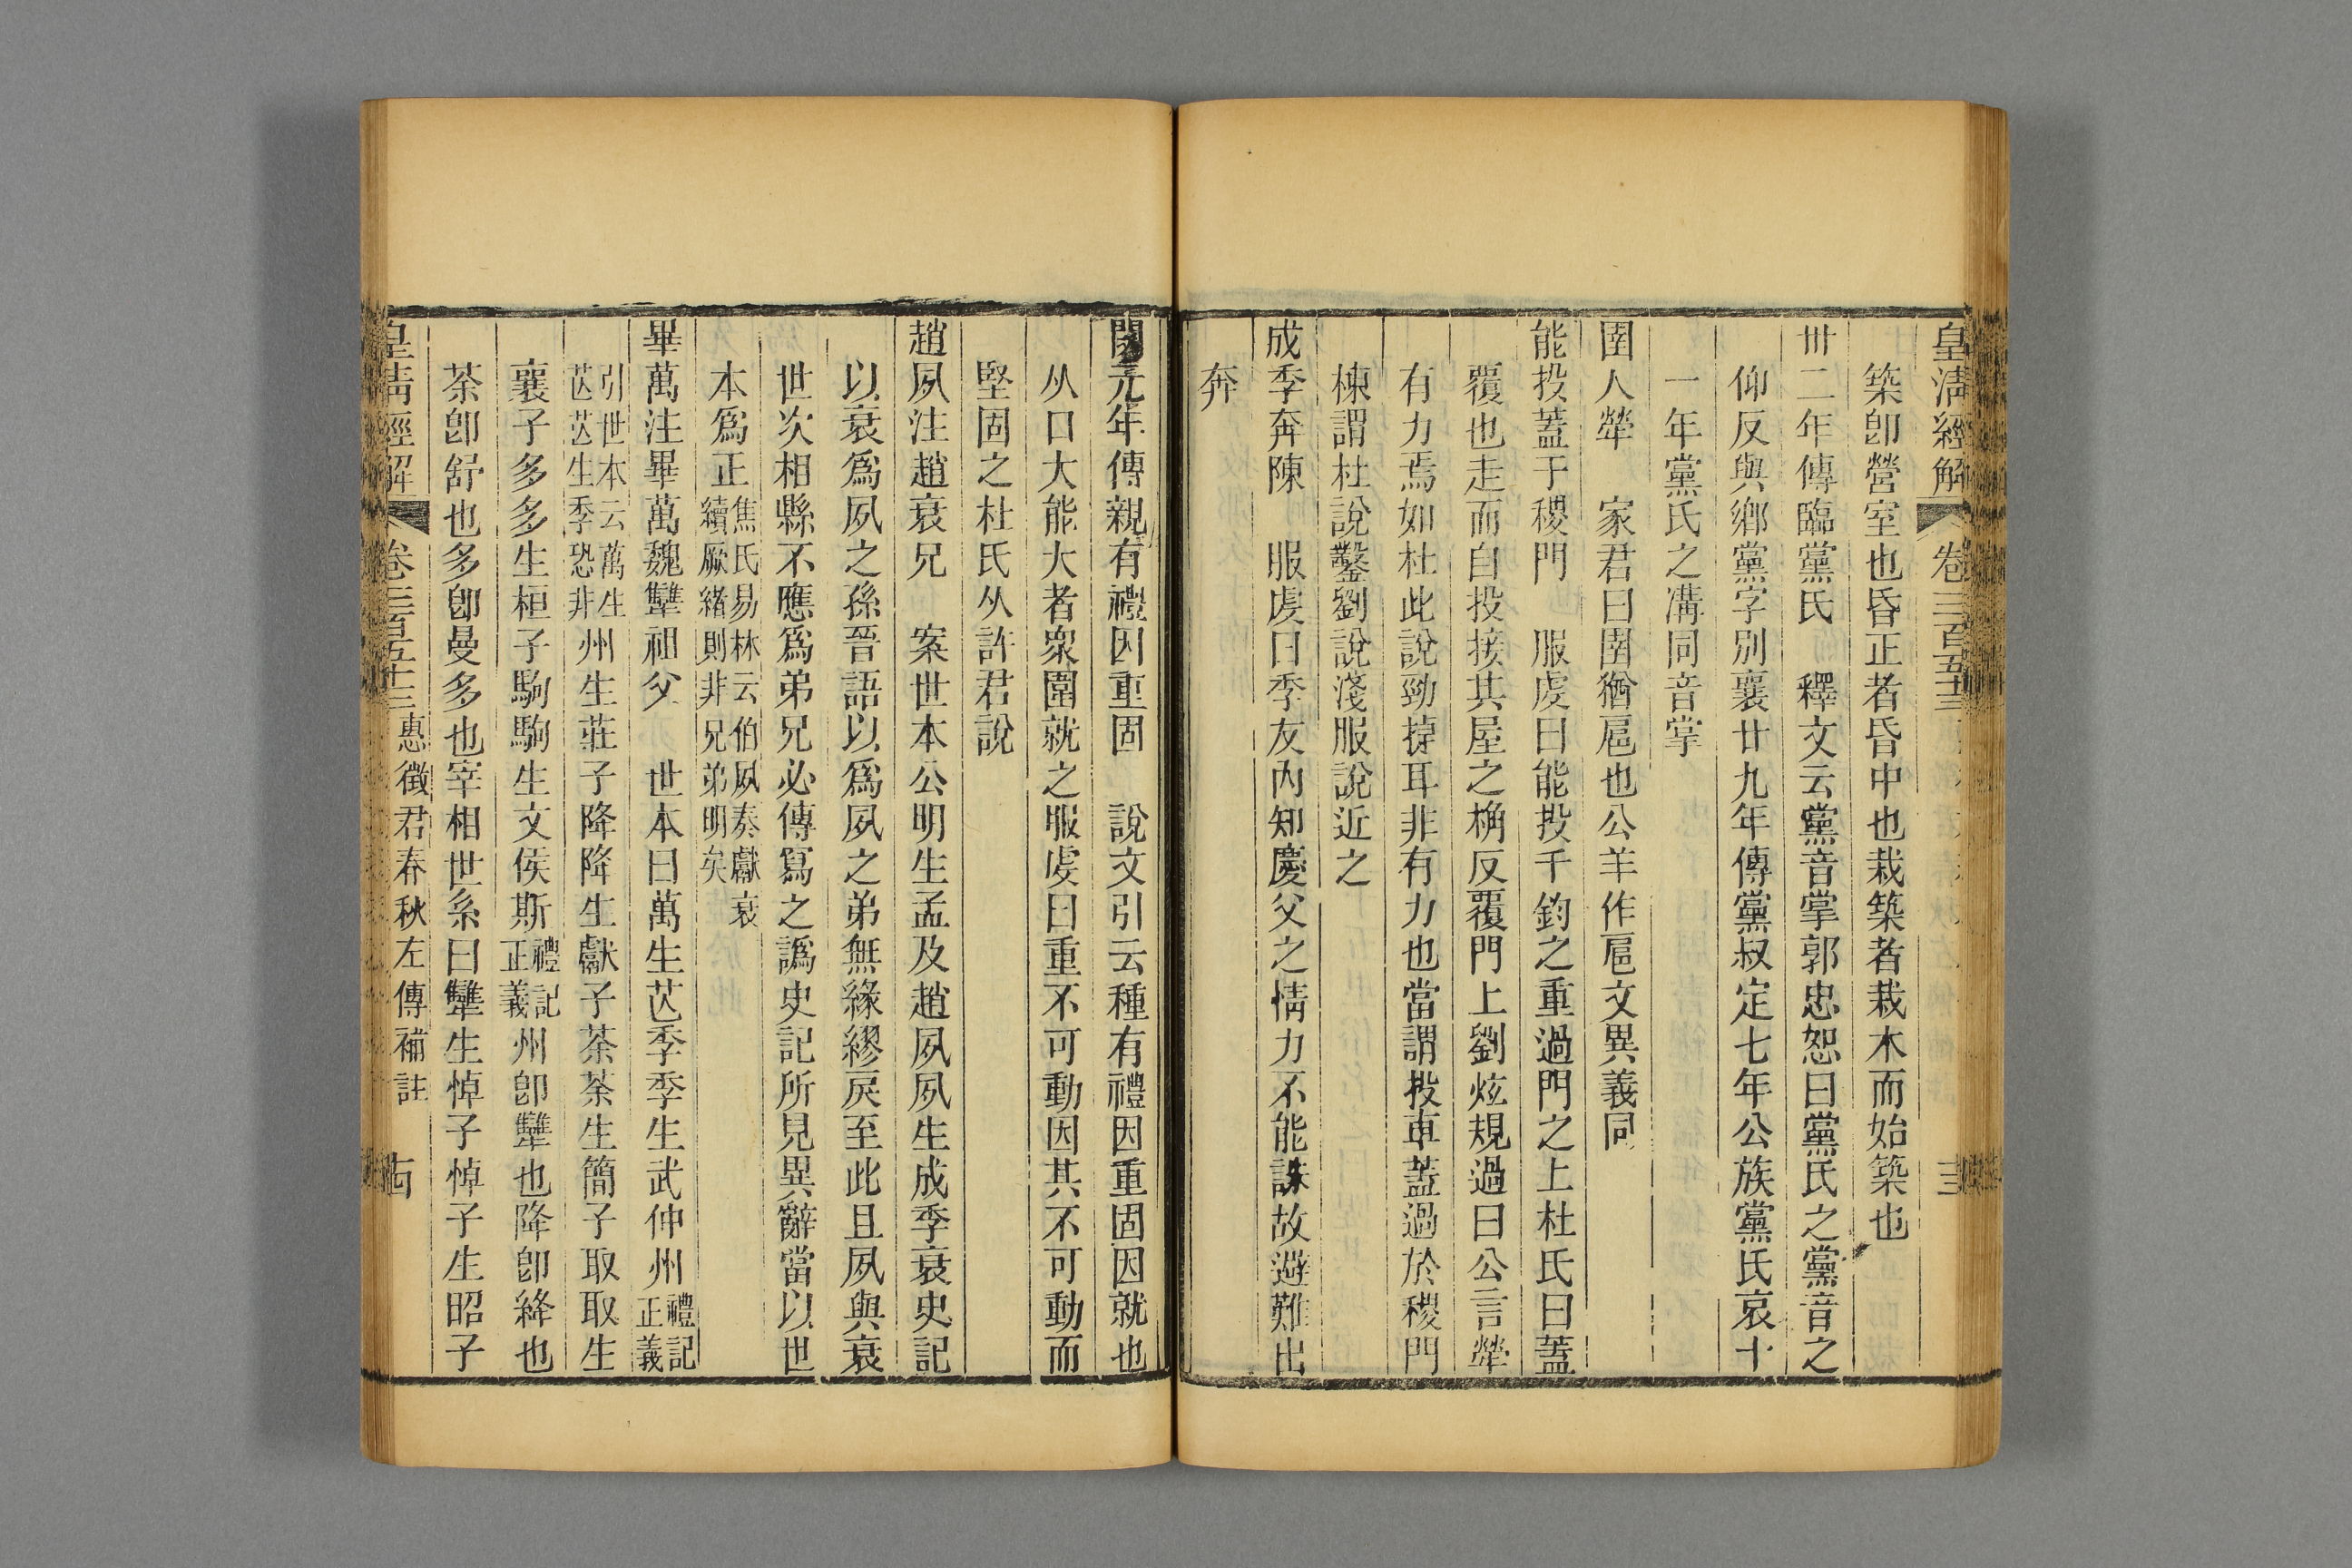 皇清經解 卷三百五十三
築卽營室也昏正者昏中也栽築者栽木而始築也
卅二年傳臨黨氏 釋文云黨音掌郭忠恕曰黨氏之黨音之
仰反與鄉黨字別襄廿九年傳黨叔定七年公族黨氏哀十
一年黨氏之溝同音掌
圉人犖 家君曰圉猶扈也公羊作扈文異義同
能投蓋于稷門 服虔曰能投千鈞之重過門之上杜氏曰蓋
覆也走而自投接其屋之桷反覆門上劉炫規過曰公言犖
有力焉如杜此說勁捷耳非有力也當謂投車蓋過於稷門
棟謂杜說鑿劉說淺服說近之
成季奔陳 服虔曰季友內知慶父之情力不能誅故避難出
奔
閔元年傳親有禮因重固 說文引云種有禮因重固因就也
从口大能大者衆圍就之服虔曰重不可動因其不可動而
堅固之杜氏从許君說
趙夙注趙衰兄 案世本公明生孟及趙夙夙生成季衰史記
以衰爲夙之孫晉語以爲夙之弟無緣繆戾至此且夙與衰
世次相縣不應爲弟兄必傳寫之譌史記所見異辭當以世
本爲正焦氏易林云伯夙奏獻衰續厥緒則非兄弟明矣
畢萬注畢萬魏犨祖父 世本曰萬生芒季季生武仲州禮記正義
引世本云萬生芒芒生季恐非州生莊子降降生獻子荼荼生簡子取取生
襄子多多生桓子駒駒生文侯斯禮記正義州卽犨也降卽絳也
荼卽舒也多卽曼多也宰相世系曰犨生悼子悼子生昭子
皇清經解 卷三百五十三 惠徵君春秋左傳補註 古